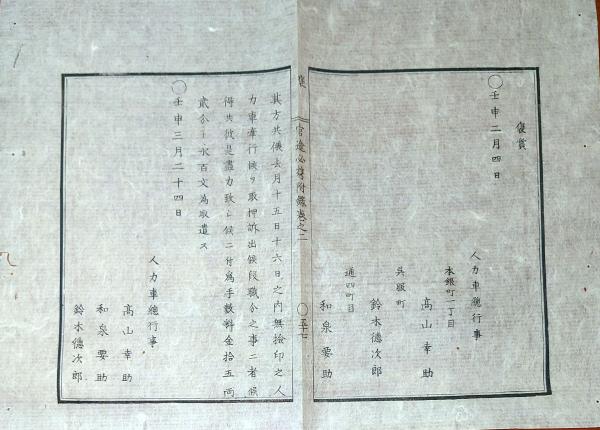 褒賞
〇壬申二月四日
人力車總行事
本銀町一丁目
髙山幸助
呉服町
鈴木德次郎
通四町目
和泉要助
官途必携附錄卷之二
〇五十七
其方共儀去月十五日十六日之内無撿印之人
力車牽行候ヲ取押訴出候段職分之事ニ者候
得共彼是盡力致シ候ニ付為手數料金拾五両
貳分ト永百文為取遣ス
〇壬申三月二十四日
人力車總行事
髙山幸助
和泉要助
鈴木德次郎